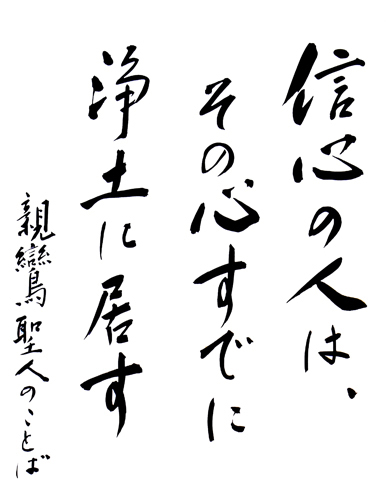 信心の人は、
その心すでに
浄土に居す
親鸞聖人のことば